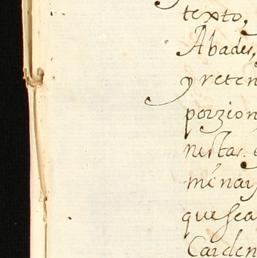 texto,
Abades,
y reten
porzion
nistas.
menar
que sea
Carden